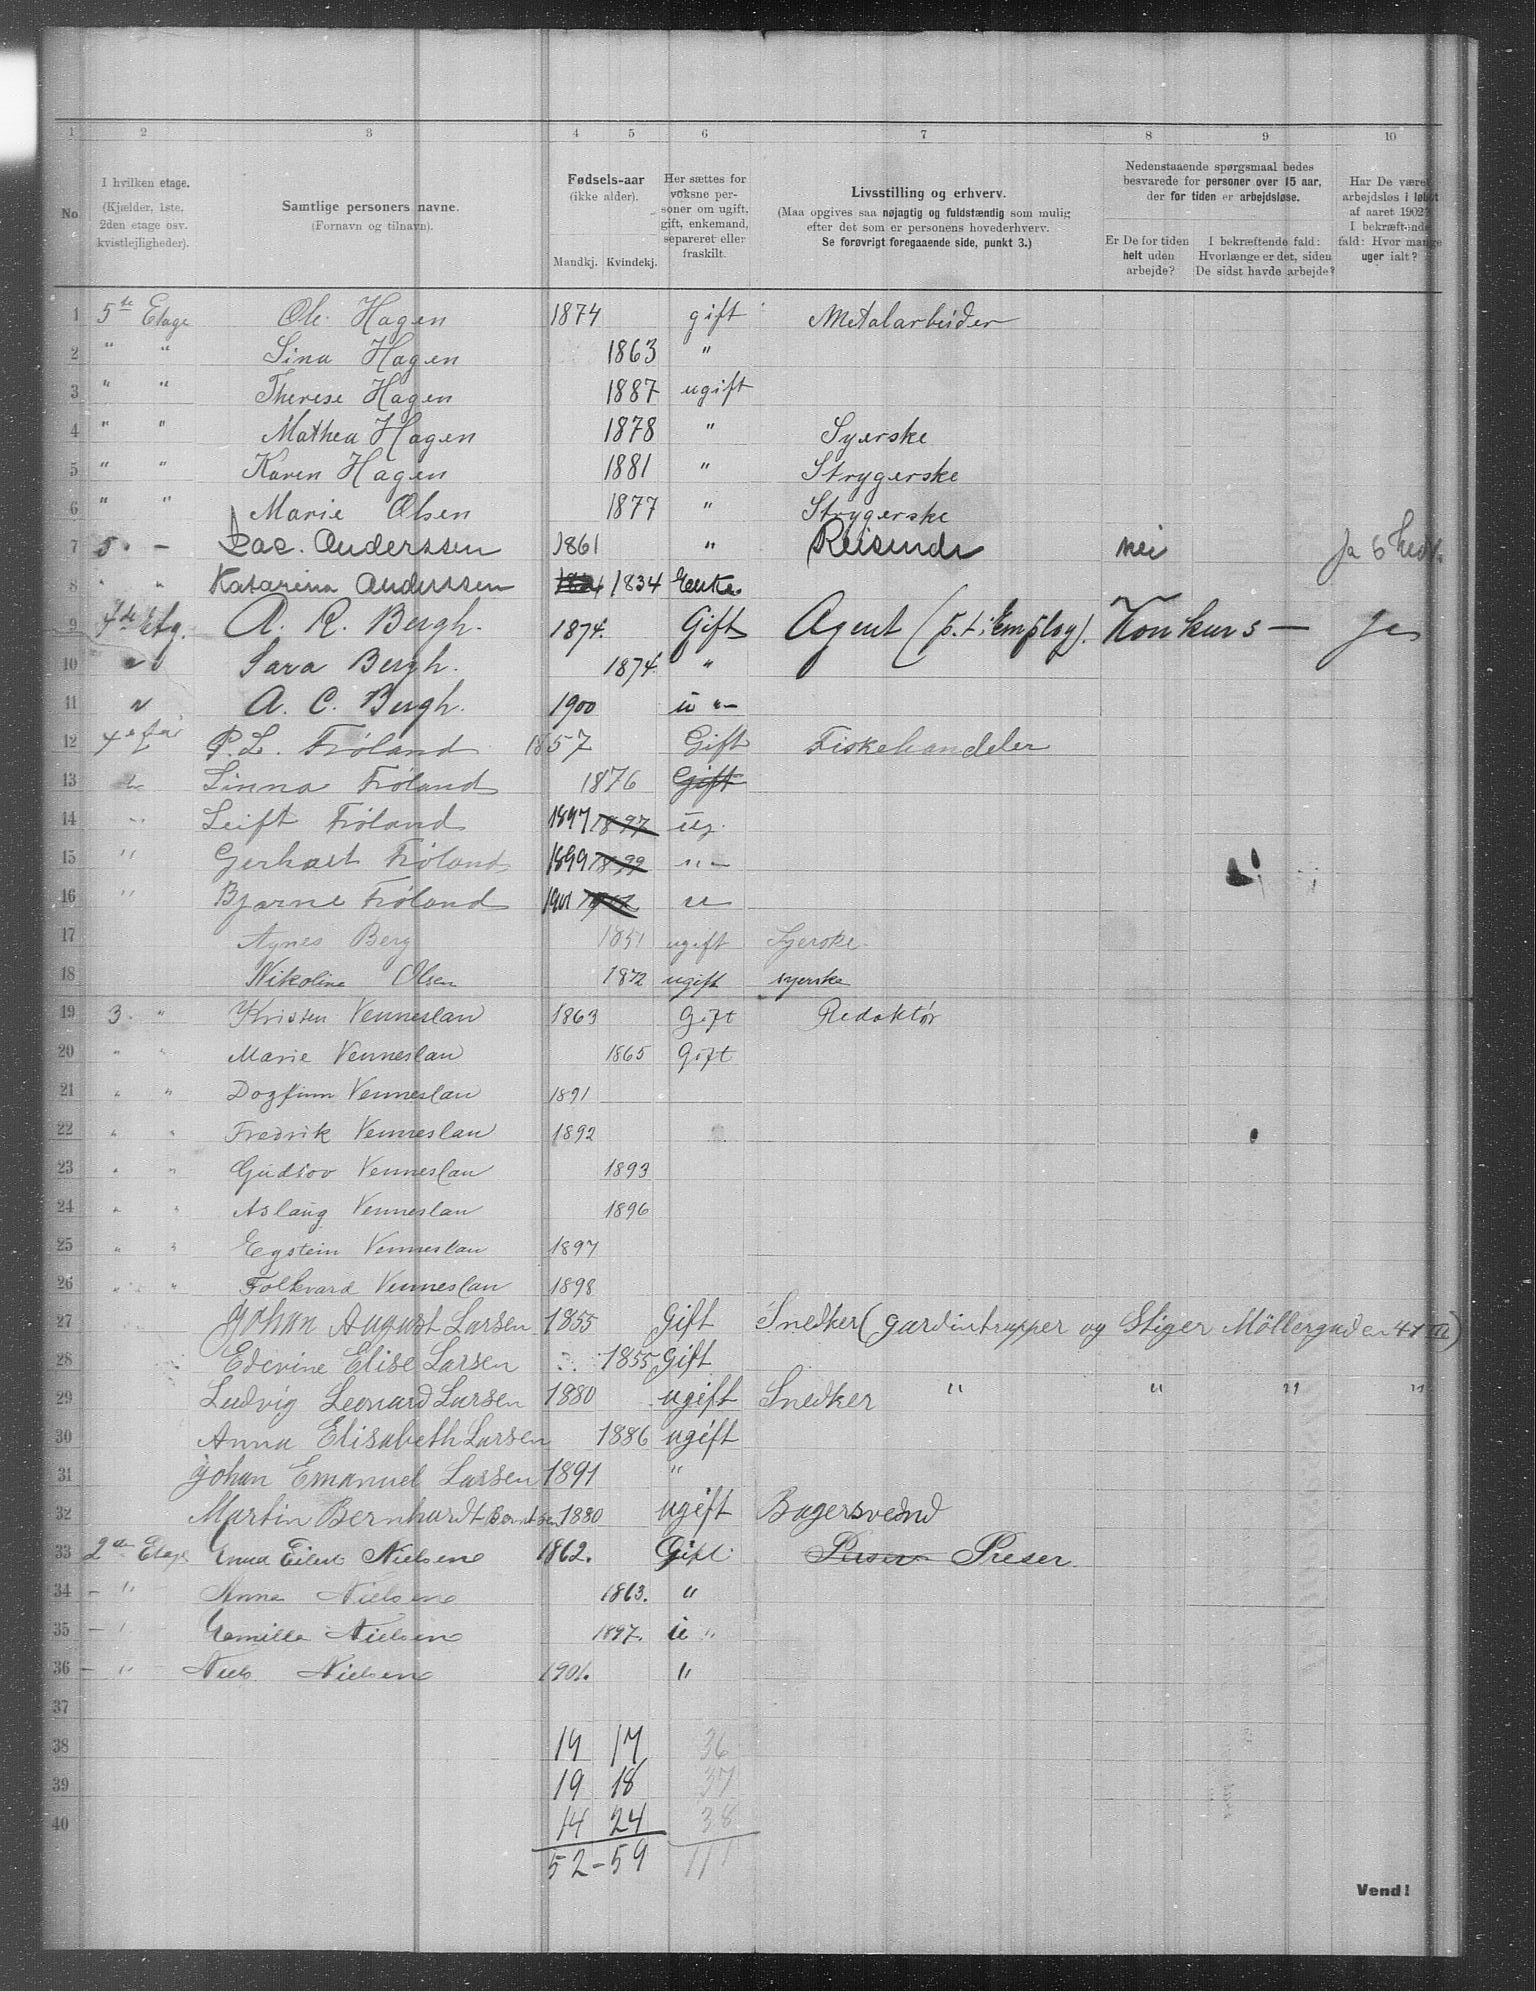 1 2 3 4 5 6 7 8 9 10
No.
I hvilken etage.
(Kjælder, 1ste, 2den etage osv. kvistlejligheder).
Samtlige personers navne.
(Fornavn og tilnavn).
Fødsels-aar
(ikke alder).
Mandkj. Kvindekj.
Her sættes for voksne personer om ugift, gift, enkemand, separeret eller fraskilt.
Livsstilling og erhverv.
(Maa opgives saa nøjagtig og fuldstændig som mulig
efter det som er personens hovederhverv.
Se forøvrigt foregaaende side, punkt 3.)
Nedenstaaende spørgsmaal bedes
besvarede for personer over 15 aar,
der for tiden er arbejdsløse.
Er De for tiden helt uden arbejde?
I bekræftende fald: Hvorlænge er det, siden De sidst havde arbejde?
Har De været arbejdsløs i løbet af aaret 1902? I bekræftende fald: Hvor mange uger ialt?
1 5te Etage Ole Hagen 1874 gift Metalarbeider
2 " " Lina Hagen 1863 "
3 " " Therese Hagen 1887 ugift
4 " " Mathea Hagen 1878 " Syerske
5 " " Karen Hagen 1881 " Strygerske
6 " " Marie Olsen 1877 " Strygerske
7 5. – Anderssen 1861 " Reisende nei Ja 6
8 " " Katarina Anderssen 1834 Enke.
9 4de Etg. A. R. Bergh. 1874. Gift Agent (p.t. Employ). Konkurs — Ja
10 " Sara Bergh. 1874. "
11 " A. C. Bergh. 1900 u "–
12 P. L. Frøland 1857 Gift Fiskehandeler
13 " Linna Frøland 1876 Gift
14 " Leift Frøland 1897 1897 ug.
15 " Gerhart Frøland 1899 1899 " –
16 " Bjarne Frøland 1901 u
17 Agnes Berg 1851 ugift Syerske.
18 Nikoline Olsen 1872 ugift syerske
19 3. " Kristen Venneslan 1863 Gift Redaktør
20 " " Marie Venneslan 1865 Gift
21 " " Dagfinn Venneslan 1891
22 " " Fredrik Venneslan 1892
23 " " Venneslan 1893
24 " " Aslaug Venneslan 1896
25 " " Eystein Venneslan 1897
26 " " Folkvard Venneslan 1898
27 Johan August Larsen 1855 Gift Snedker (gardintrapper og Stiger Möllergaden 47 III)
28 Edevine Elise Larsen 1855 Gift
29 Ludvig Leonard Larsen 1880 ugift Snedker " " " "
30 Anna Elisabeth Larsen 1886 ugift
31 Johan Emanuel Larsen 1891 "
32 Martin Bernhardt Berntsen 1880 ugift Bagersvend
33 2den Etage Eilert Nielsen 1862. Gift. Preser
34 – " Anna Nielsen 1863. "
35 – " Camilla Nielsen 1897. u "
36 – " Niels Nielsen 1901. "
37
38 19 17 36
39 19 18 37
40 14 24 38
52 – 59 111
Vend!